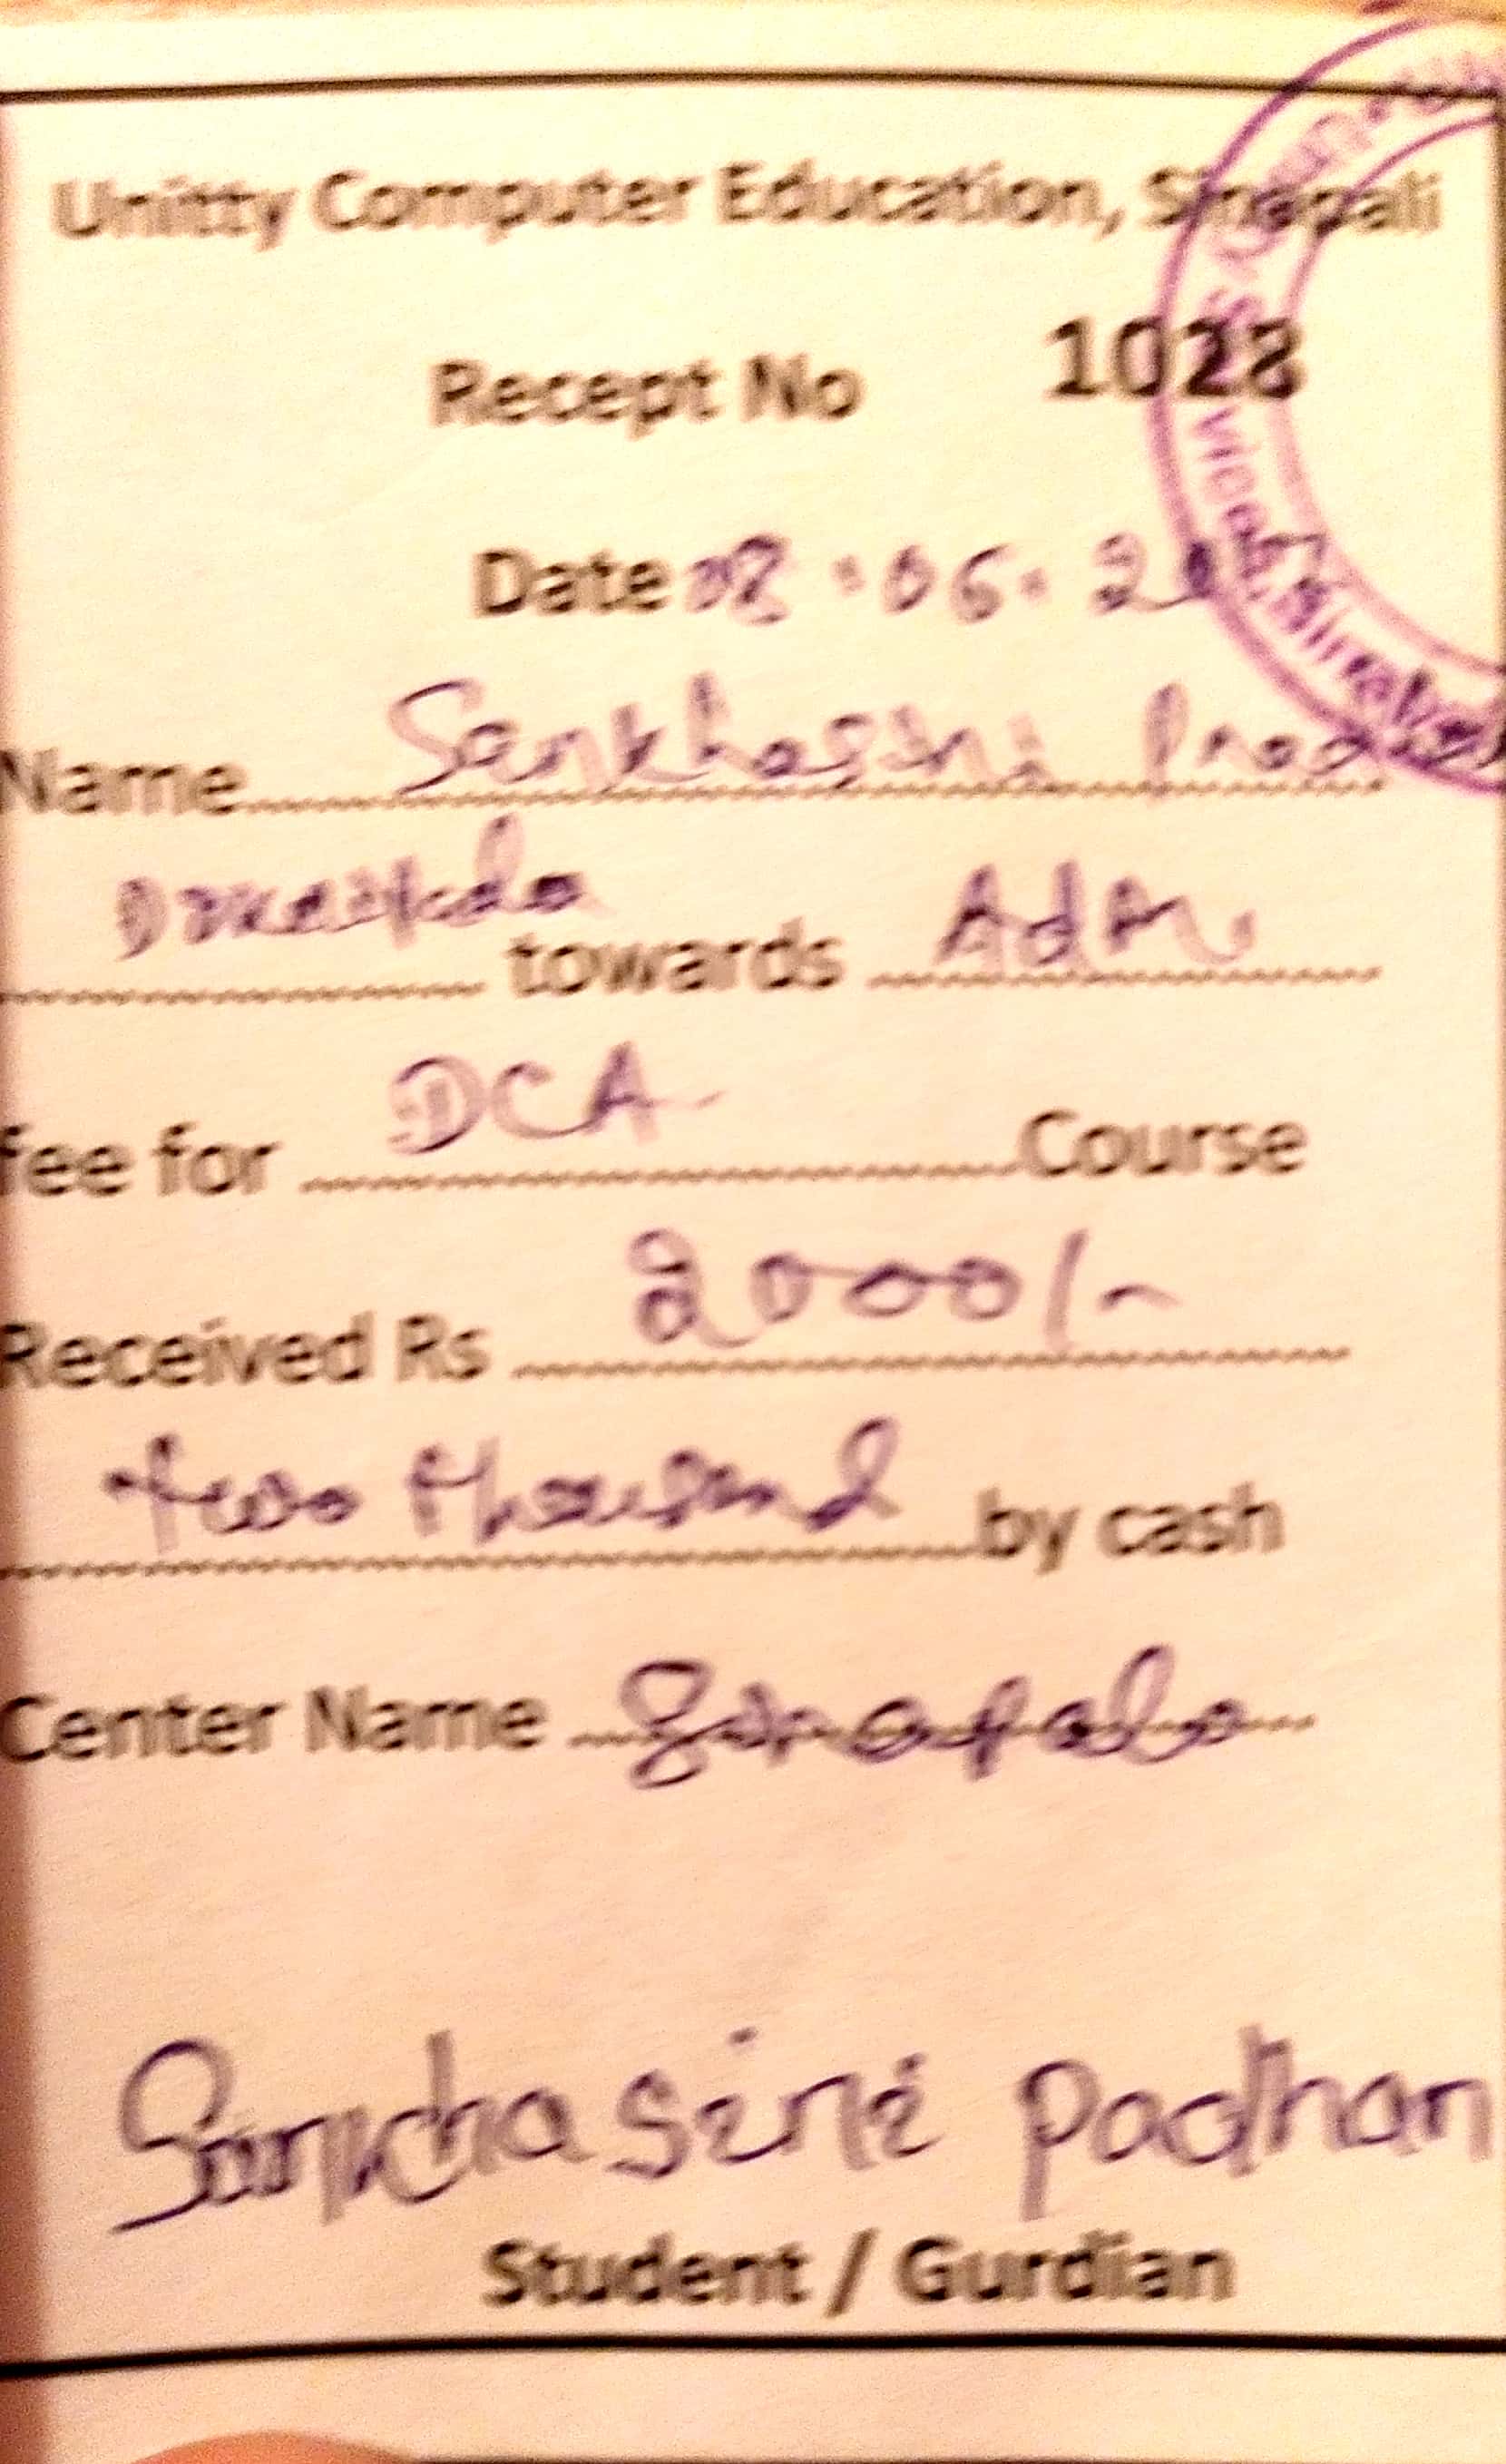 Unitty Computer Education, Sinapali
Recept No 1028
Date 08.06.2
Name Sankhasini
towards Adm.
fee for DCA Course
Received Rs 2000/-
two thousand by cash
Center Name Sinapali
Sankhasini Padhan
Student / Gurdian